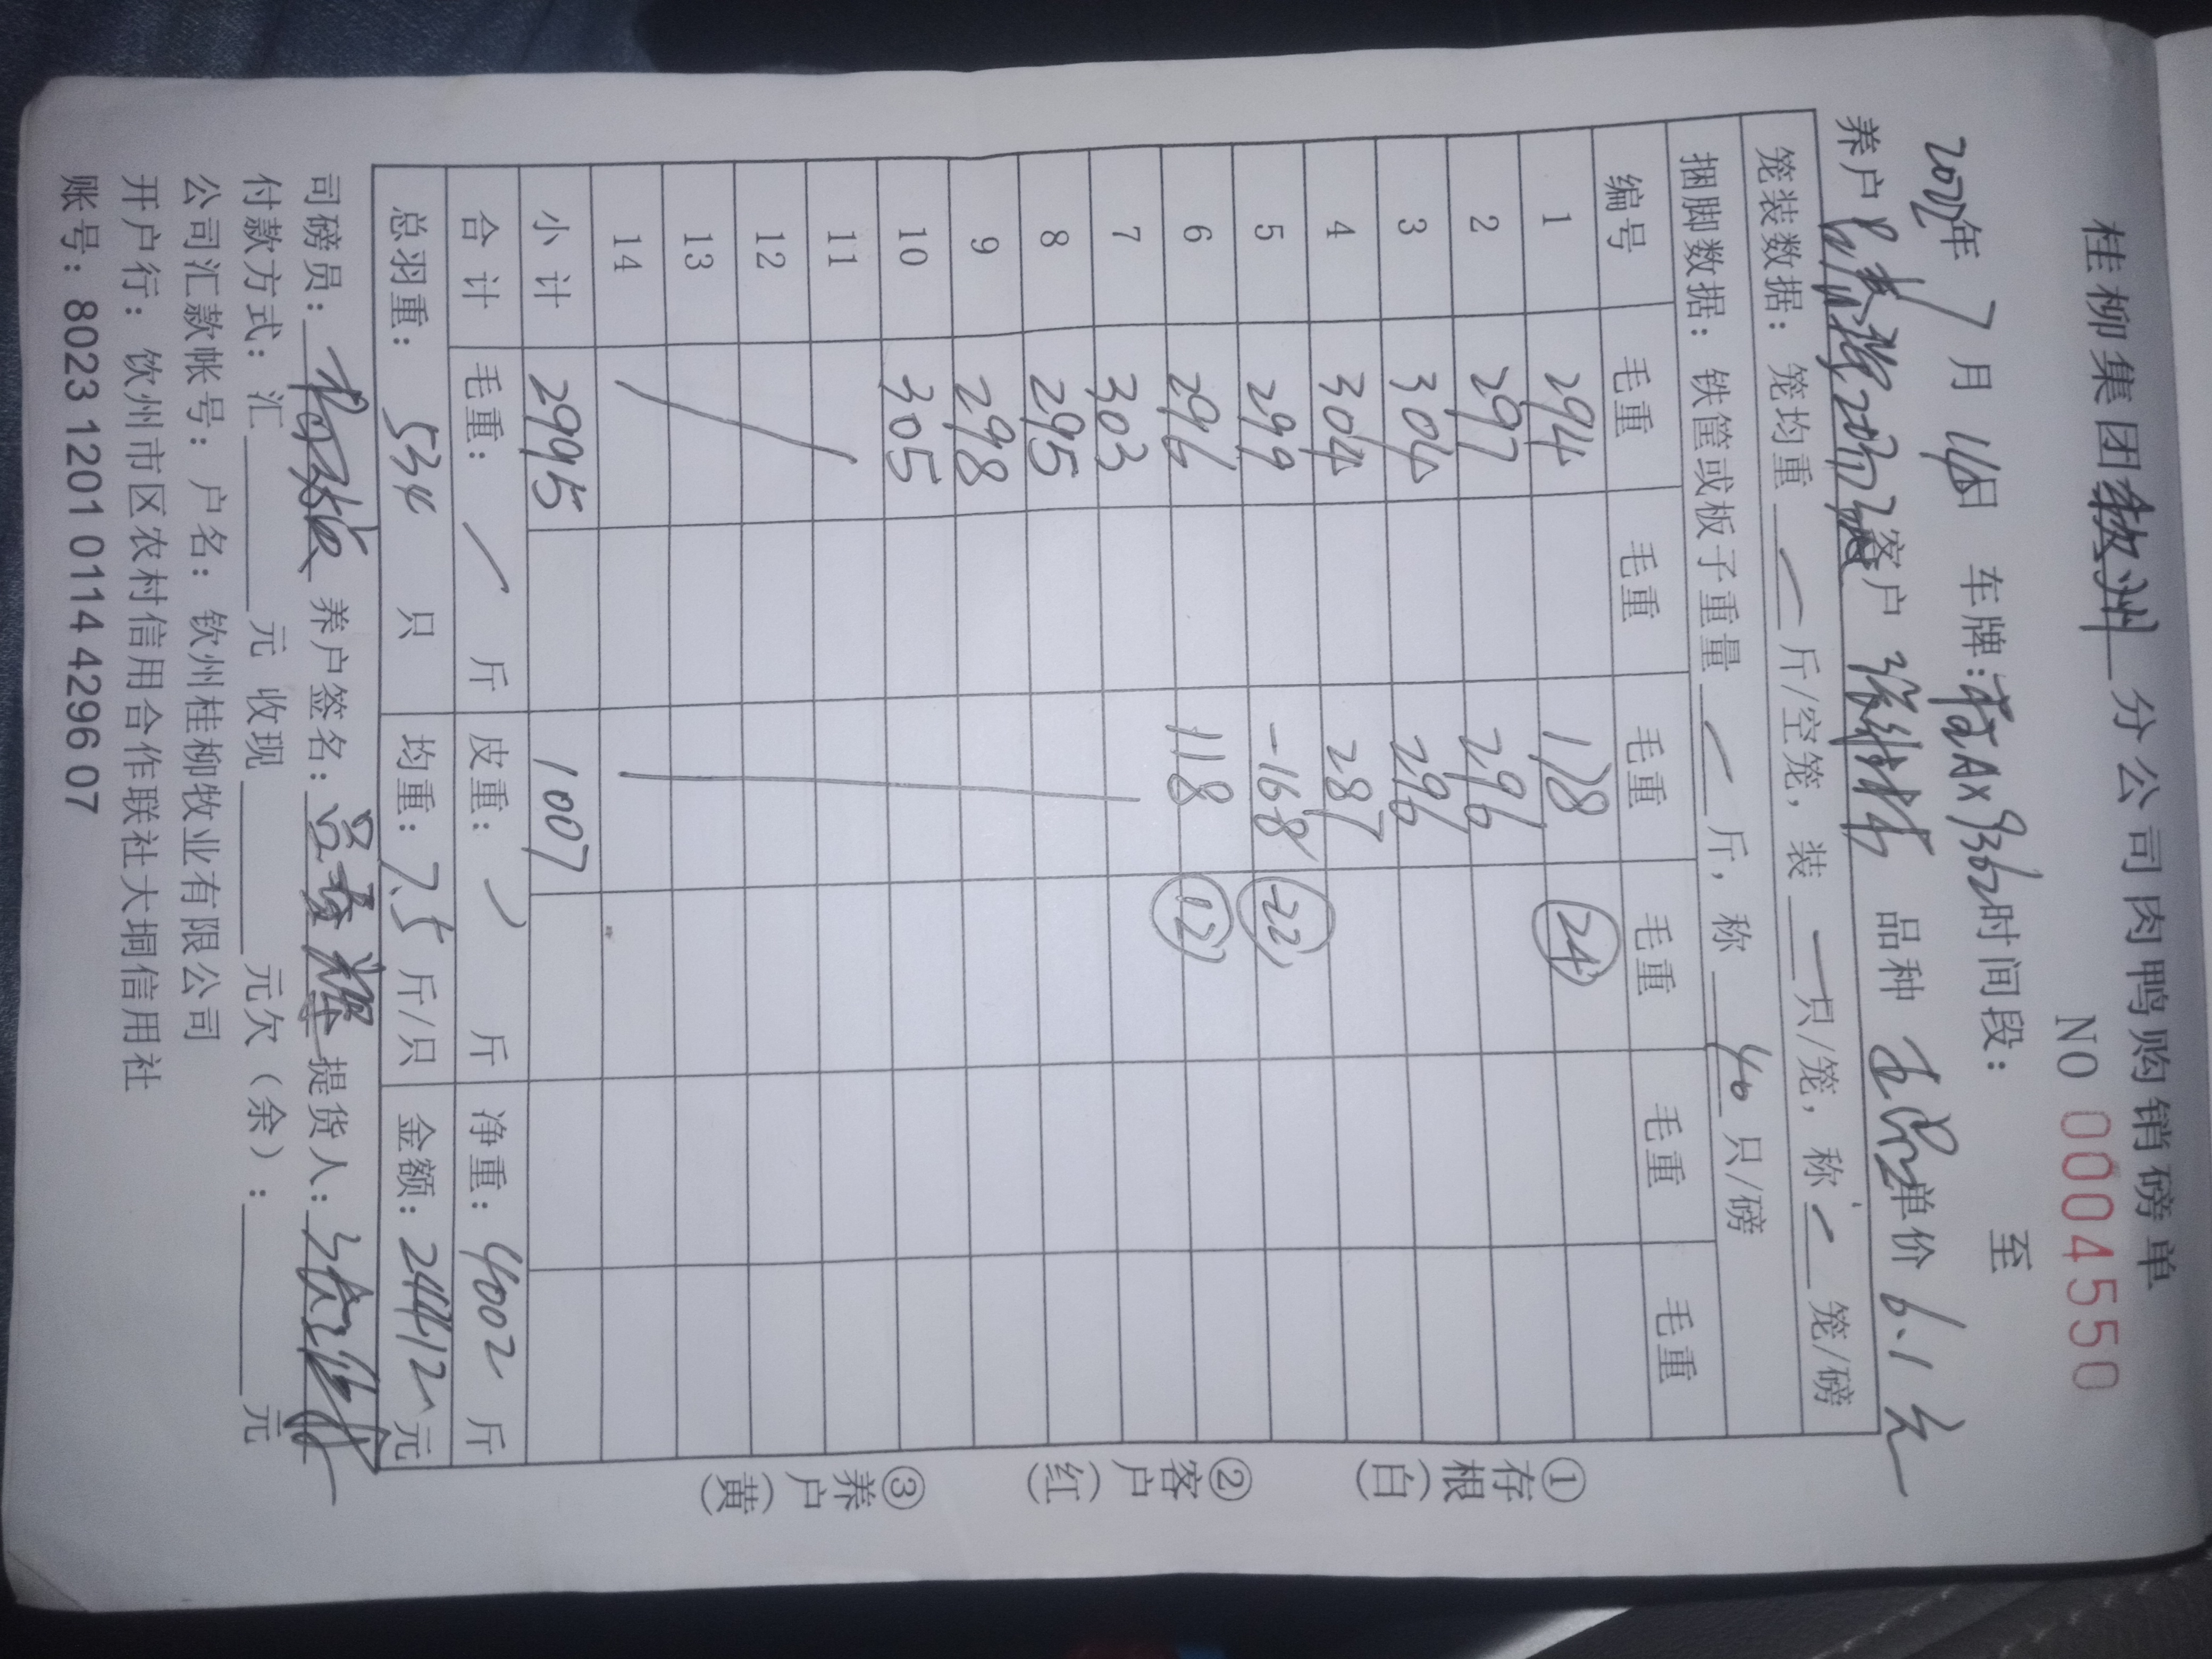 桂柳集团钦州分公司肉鸭购销磅单
NO 0004550
2022年7月16日 车牌: AX9362 时间段: 至
养户 客户 品种 单价 6.1元
笼装数据: 笼均重 / 斤/空笼, 装 / 只/笼, 称 / 笼/磅
捆脚数据: 铁筐或板子重量 / 斤, 称 40 只/磅
编号 毛重 毛重 毛重 毛重 毛重 毛重
1 294 178 (24)
2 297 296
3 304 296
4 304 287
5 299 -168 (22)
6 296 118 (12)
7 303
8 295
9 298
10 305
11
12
13
14
小计 2995 1007
合计 毛重: / 斤 皮重: / 斤 净重: 4002 斤
总羽重: 534 只 均重: 7.5 斤/只 金额: 24412 元
司磅员: 养户签名: 提货人:
付款方式: 汇 元 收现 元欠(余): 元
公司汇款帐号: 户名: 钦州桂柳牧业有限公司
开户行: 钦州市区农村信用合作联社大垌信用社
账号: 8023 1201 0114 4296 07
①存根(白) ②客户(红) ③养户(黄)